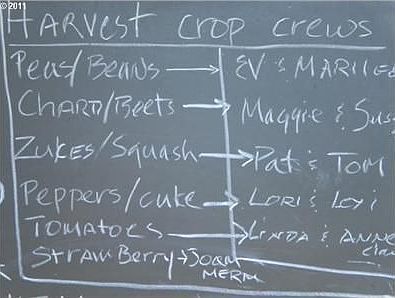 © 2011
HARVEST CROP CREWS
Peas/Beans → EV &
Chard/Beets → Maggie &
Zukes/Squash → Pat & Tom
Peppers/cuke → Lori &
Tomatoes → Linda & Anne
Strawberry → Joan